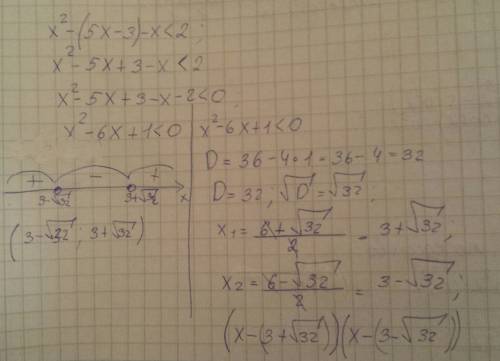 x² - (5x - 3) - x < 2;
x² - 5x + 3 - x < 2
x² - 5x + 3 - x - 2 < 0
x² - 6x + 1 < 0
+ - +
3-√32 3+√32 x
(3-√32; 3+√32)
x² - 6x + 1 < 0
D = 36 - 4·1 = 36 - 4 = 32
D = 32; √D = √32;
x₁ = (6+√32)/2 = 3+√32;
x₂ = (6-√32)/2 = 3-√32;
(x-(3+√32))(x-(3-√32))